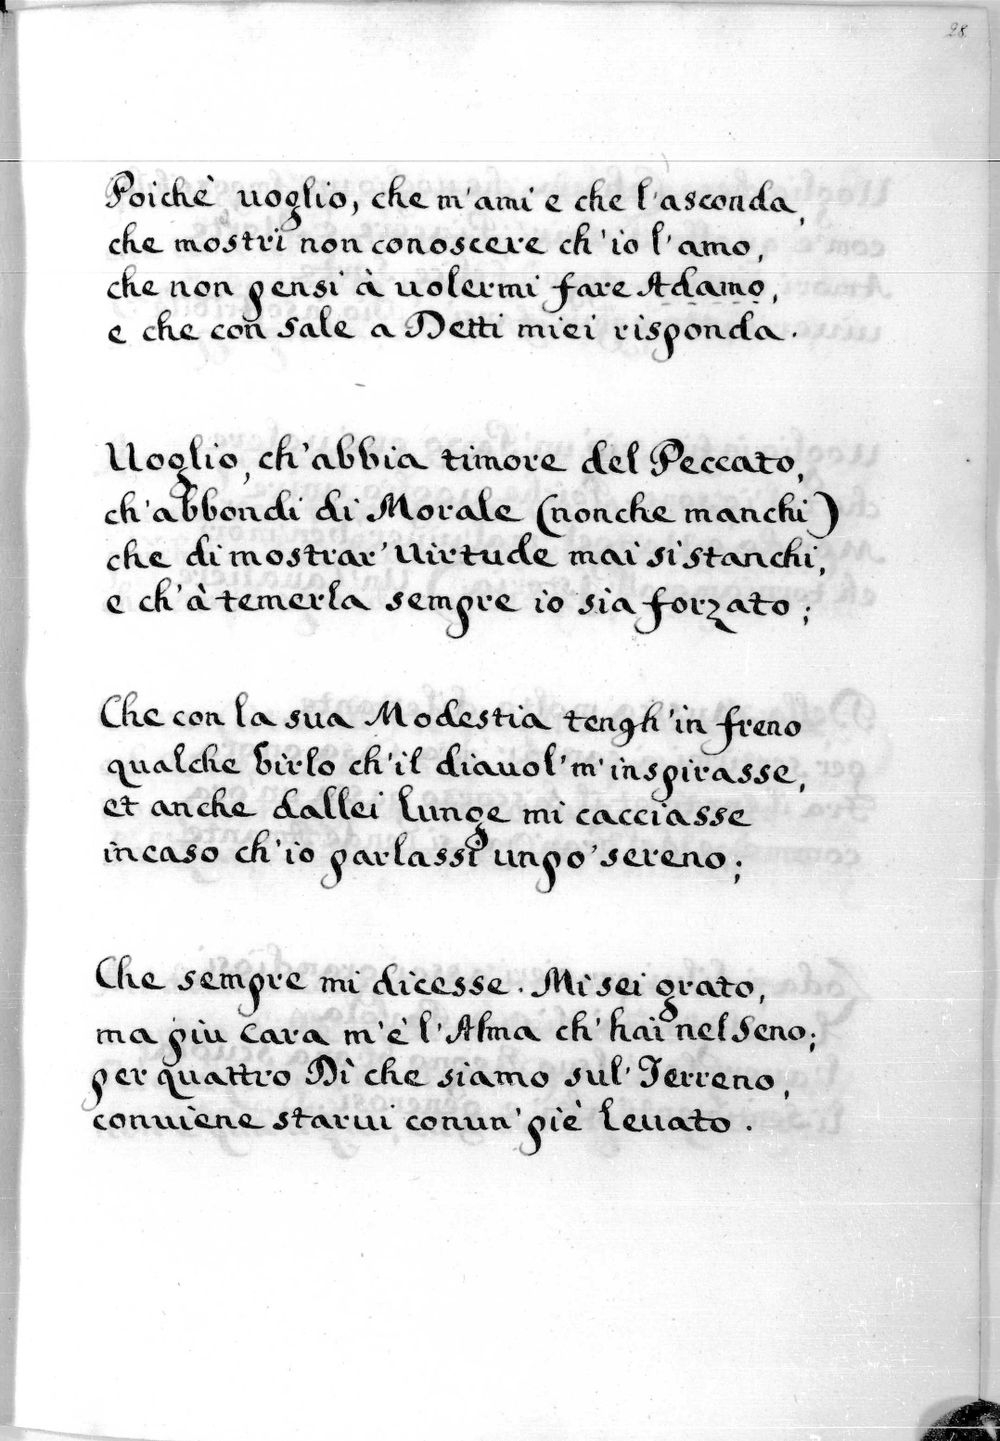 28
Poichè uoglio, che m'ami e che l'asconda,
che mostri non conoscere ch'io l'amo,
che non pensi à uolermi fare Adamo,
e che con sale a Detti miei risponda.
Uoglio, ch'abbia timore del Peccato,
ch'abbondi di Morale (nonche manchi)
che di mostrar' Uirtude mai si stanchi,
e ch'à temerla sempre io sia forzato;
Che con la sua Modestia tengh'in freno
qualche birlo ch'il diauol' m'inspirasse,
et anche dallei lunge mi cacciasse
in caso ch'io parlassi un po' sereno;
Che sempre mi dicesse. Mi sei grato,
ma più cara m'è l'Alma ch'hai nel Seno;
per quattro Dì che siamo sul' Terreno,
conuiene starui con un' piè leuato.